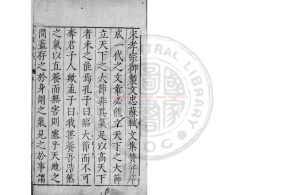 宋孝宗御製文忠蘇軾文集贊并序
成一代之文章必能立天下之大節
立天下之大節非其氣足以高天下
者未之能焉孔子曰臨大節而不可
奪君子人歟孟子曰我善養吾浩然
之氣以直養而無害則塞乎天地之
間蓋存之於身謂之氣見之於事謂